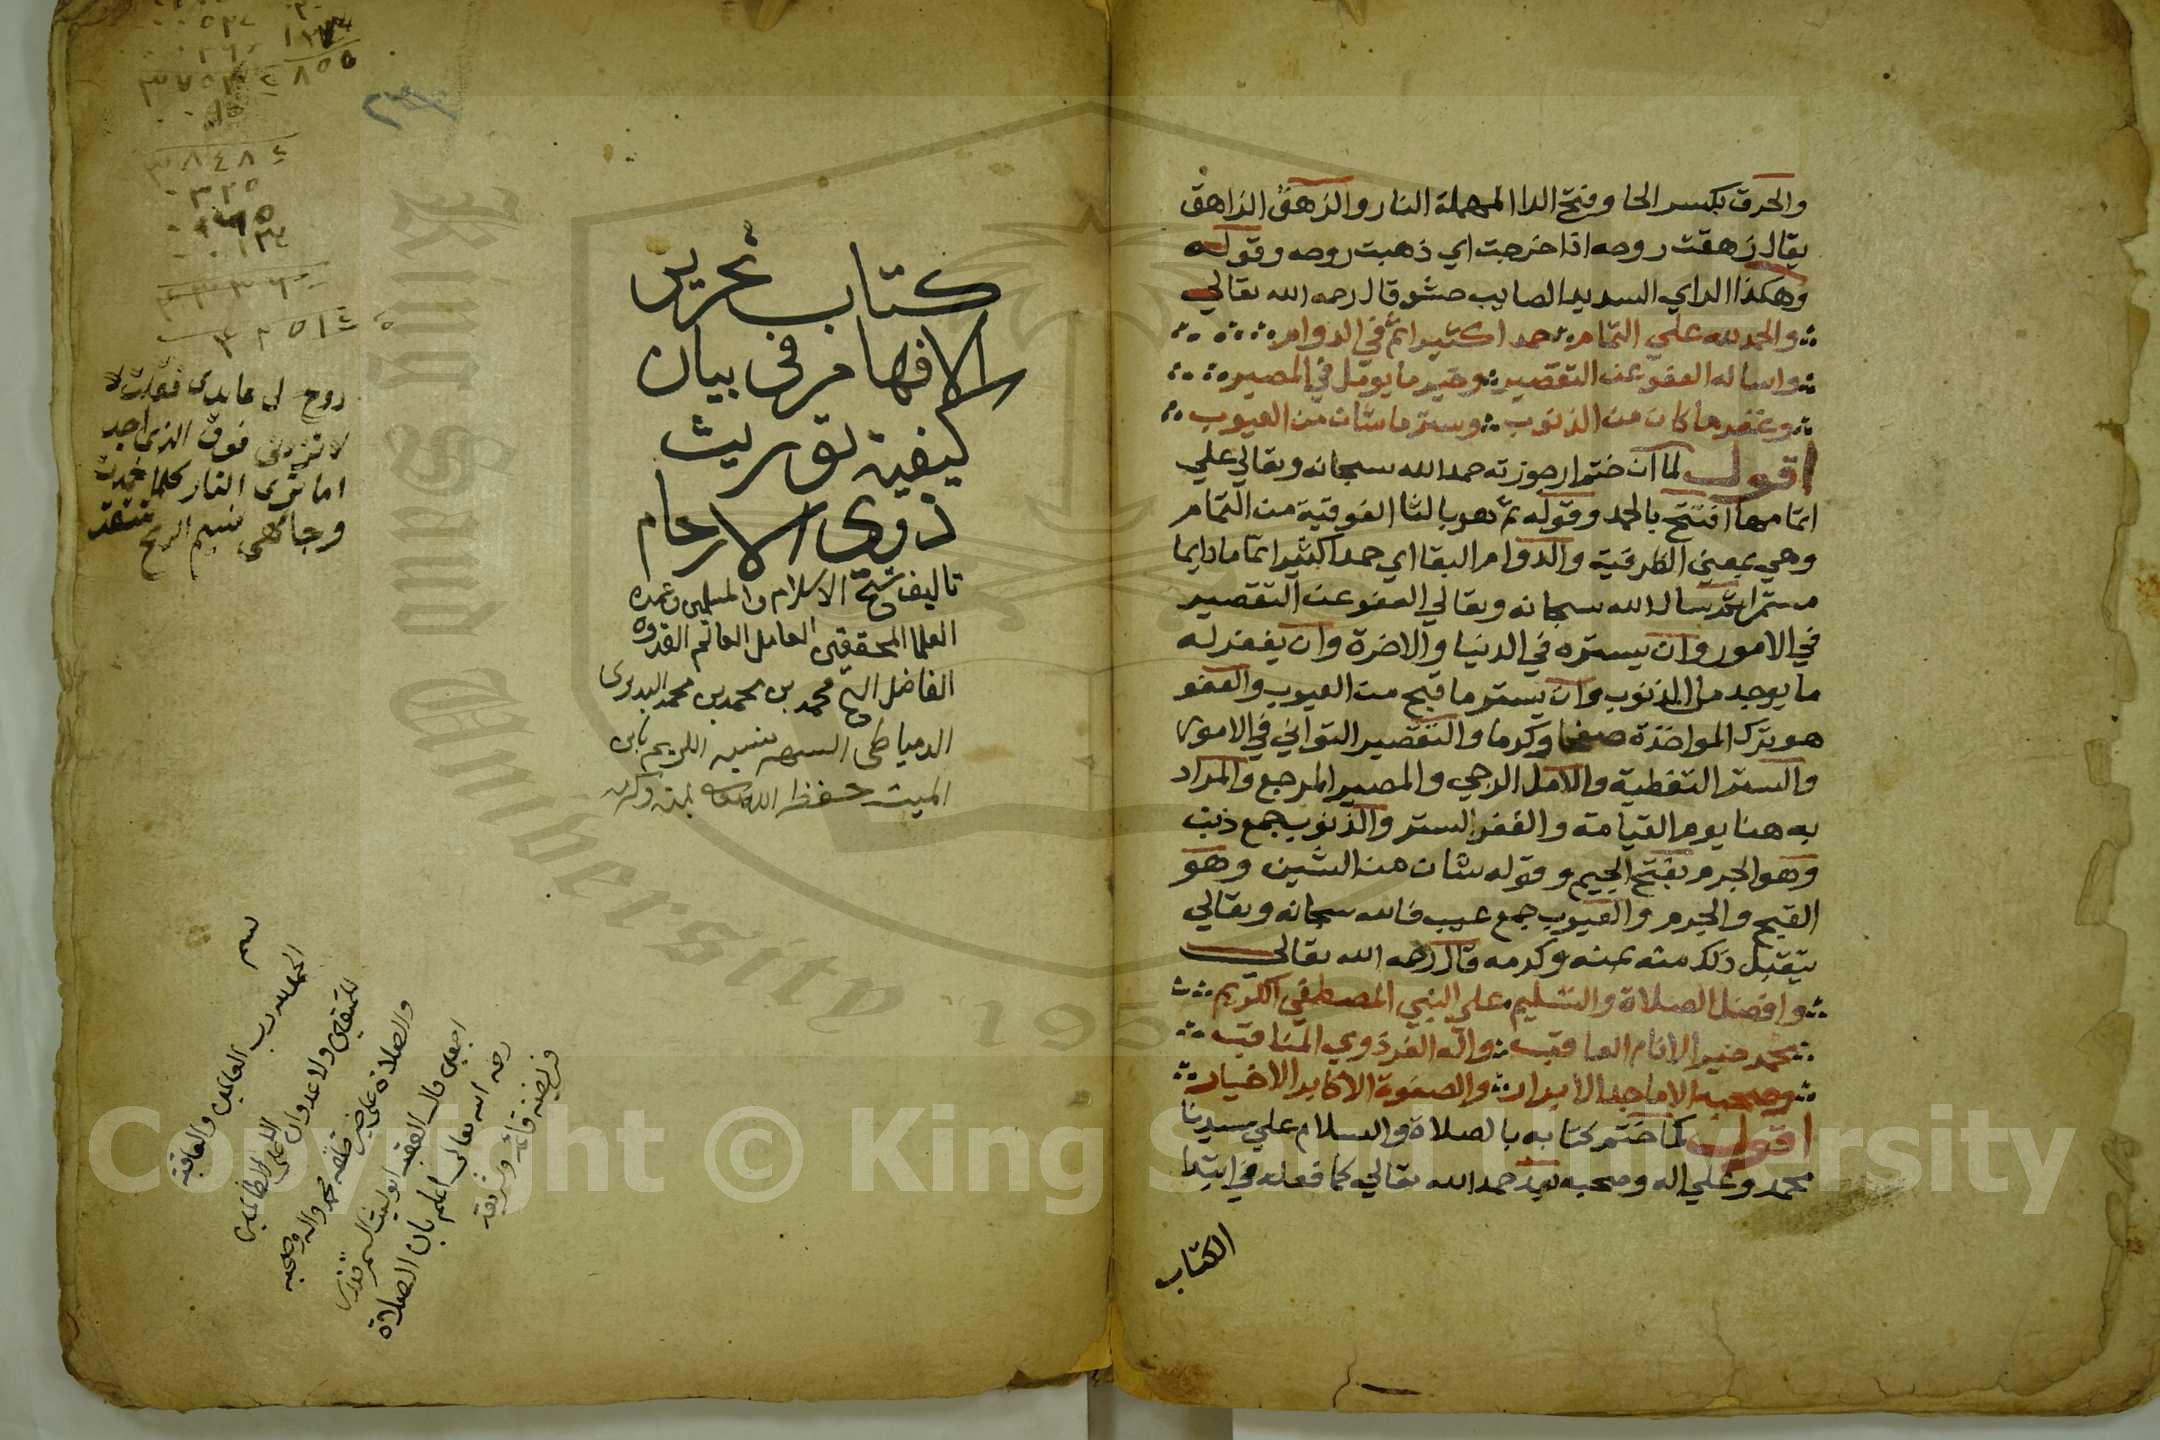 والحرق بكسر الحا وفتح الرا المهملة النار والزهق الزاهق
يقال زهقت روحه اذا خرجت اي ذهبت روحه وقوله
وهكذا الراي السديد الصايب حشو قال رحمه الله تعالي
والحمد لله علي التمام حمدا كثيرا تم في الدوام
واساله العفو عن التقصير وخير ما يومل في المصير
وغفر ما كان من الذنوب وستر ما شان من العيوب
اقول لما ان ختم ارجوزته حمد الله سبحانه وتعالي علي
اتمامها افتتح بالحمد وقوله تم هو بالتا الفوقية من التمام
وفي بمعني الظرفية والدوام البقا اي حمدا كثيرا تاما دايما
مستمرا ثم سال الله سبحانه وتعالي العفو عن التقصير
في الامور وان يستره في الدنيا والاخرة وان يغفر له
ما يوجد من الذنوب وان يستر ما قبح من العيوب والعفو
هو ترك المواخذة صفحا وكرما والتقصير التواني في الامور
والستر التغطية والامل الرجي والمصير المرجع والمراد
به هنا يوم القيامة والغفر الستر والذنوب جمع ذنب
وهو الجرم بفتح الجيم وقوله شان من الشين وهو
القبح والجرم والعيوب جمع عيب فالله سبحانه وتعالي
يتقبل ذلك منه بمنه وكرمه قال رحمه الله تعالي
وافضل الصلاة والتسليم علي النبي المصطفي الكريم
محمد خير الانام العاقب واله الغر ذوي المناقب
وصحبه الاماجد الابرار والصفوة الاكابر الاخيار
اقول لما ختم كتابه بالصلاة والسلام علي سيدنا
محمد وعلي اله وصحبه بعد حمد الله تعالي كما فعله في ابتدا
الكتاب
كتاب تحرير
الافهام في بيان
كيفية توريث
ذوى الارحام
تاليف شيخ الاسلام والمسلمين وعمدة
العلما المحققين العامل العالم القدوة
الفاضل الشيخ محمد بن محمد بن محمد البديرى
الدمياطى الشهير نسبه الكريم بابن
الميت حفظه الله تعالى بمنه وكرمه
٢٨٥٥
٣٨٤٨٤
٣٢٥
لا تزدنى فوق الذى اجد
اما ترى النار كلما خمدت
وجاءها نسيم الريح تتقد
بسم
الحمد لله رب العالمين والعاقبة
للمتقين ولا عدوان الا على الظالمين
والصلاة على خير خلقه محمد واله وصحبه
اجمعين قال الفقيه ابو ليث السمرقندى
رحمه الله تعالى اعلم بان الصلاة
فريضة قائمة وشريعة
Copyright © King Saud University
King Saud University 195